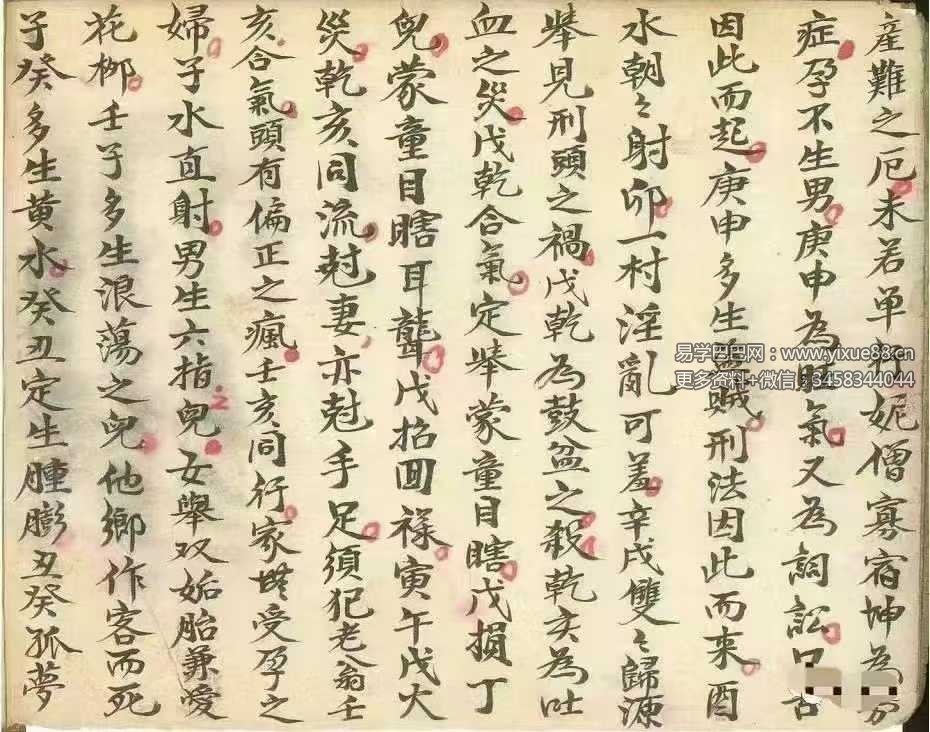 産難之厄未若單打妮僧寡宿坤為万
症孕不生男庚申為旺氣又為詞訟口舌
因此而起庚申多生盗賊刑法因此而来酉
水朝々射卯一村淫亂可羞辛戌雙々歸源
舉見刑頭之禍戊乾為鼓盆之殺乾亥為吐
血之災戊乾合氣定舉蒙童目瞎戊損丁
兒蒙童目瞎耳聾戊招囬祿寅午戌火
災乾亥同流尅妻亦尅手足須犯老翁壬
亥合氣頭有偏正之瘋壬亥同行家無受孕之
婦子水直射男生六指兒女舉双妬胎兼愛
花柳壬子多生浪蕩之兒他鄉作客而死
子癸多生黄水癸丑定生腫膨丑癸孤夢
易学巴巴网：www.yixue88.cn
更多资料+微信：3458344044